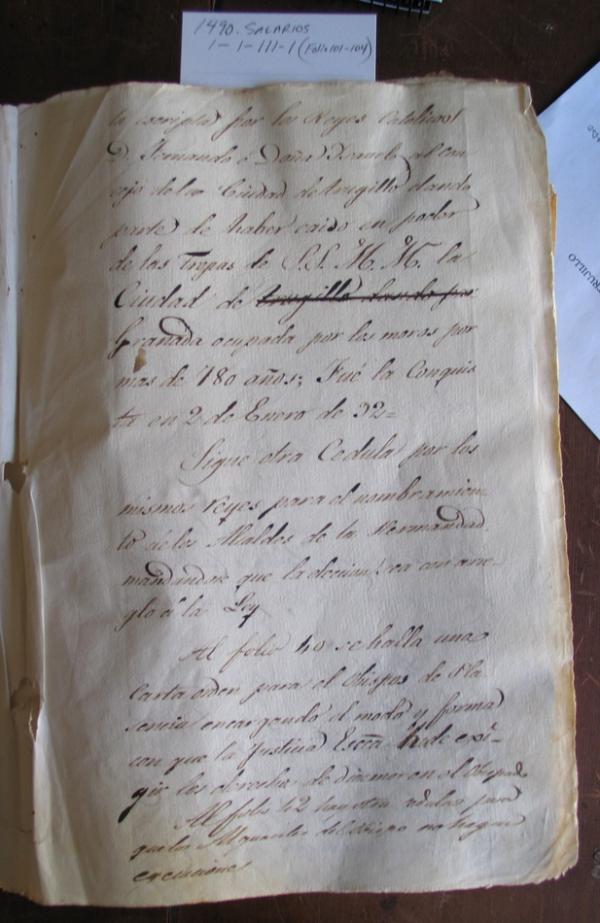 1490. SALARIOS
1-1-111-1 (Folio 101-104)
TRUJILLO
la escripta por los Reyes Catolicos
D. Fernando é Doña Ysavel al con
cejo de la Ciudad de trugillo dando
parte de haber caido en poder
de las Tropas de S.S. M. M. la
Ciudad de trugillo dando por
Granada ocupada por los moros por
mas de 780 años; Fué la Conquis
ta en 2 de Enero de 92=
Sigue otra Cedula por los
mismos Reyes para el nombramien
to de los Alcaldes de la Hermandad
mandandose que la eleccion sea con arre-
glo á la Ley
Al folio 40 se halla una
Carta orden para el Obispo de Pla
sencia encargando el modo y forma
con que la Justicia Ecca. ha de exi-
gir los derechos de diezmos en el Obispado
Al folio 42 hay otra cedula para
que los Alguaciles del Obispo no hagan
execuciones